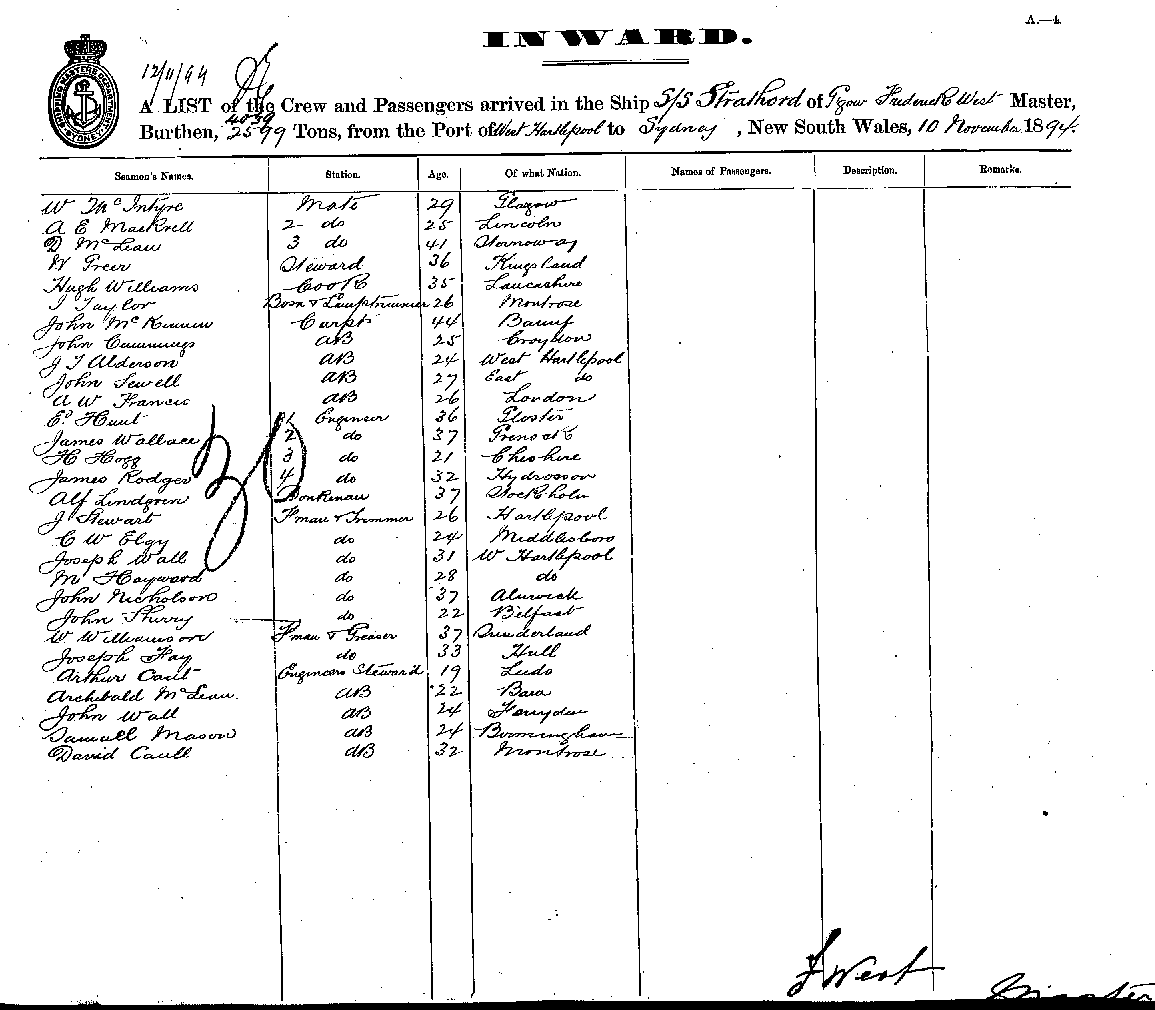 A.—4.
INWARD.
12/11/94
A LIST of the Crew and Passengers arrived in the Ship S/S Strathord of Tgow Frederick West Master,
4039
Burthen, 2599 Tons, from the Port of West Hartlepool to Sydney, New South Wales, 10 November 1894.
Seamen's Names. Station. Age. Of what Nation. Names of Passengers. Description. Remarks.
W McIntyre Mate 29 Glasgow
A E Mackrell 2 do 25 Lincoln
D McLean 3 do 41 Stornoway
W Greer Steward 36 Kingsland
Hugh Williams Cook 35 Lancashire
J Taylor Bosn & Lamptrimmer 26 Montrose
John McKinnen Carpt 44 Banff
John Cummings AB 25 Croydon
J T Alderson AB 24 West Hartlepool
John Sewell AB 27 East do
A W Francis AB 26 London
Ed Hunt 1 Engineer 36 Gloster
James Wallace 2 do 37 Grenock
H Hogg 3 do 21 Cheshire
James Rodger 4 do 32
Alf Lindgren Donkeman 37 Stockholm
J Stewart Fman & Trimmer 26 Hartlepool
C W Elgy do 24 Middlesboro
Joseph Wall do 31 W Hartlepool
M Hayward do 28 do
John Nicholson do 37 Alnwick
John Sherry do 22 Belfast
W Williamson Fman & Greaser 37 Sunderland
Joseph Fay do 33 Hull
Arthur Cault Engineers Steward 19 Leeds
Archibald McLean. AB 22 Bara
John Wall AB 24 Ferryden
Samuell Mason AB 24 Booringham
David Caull AB 32 Montrose
30
F West
Master